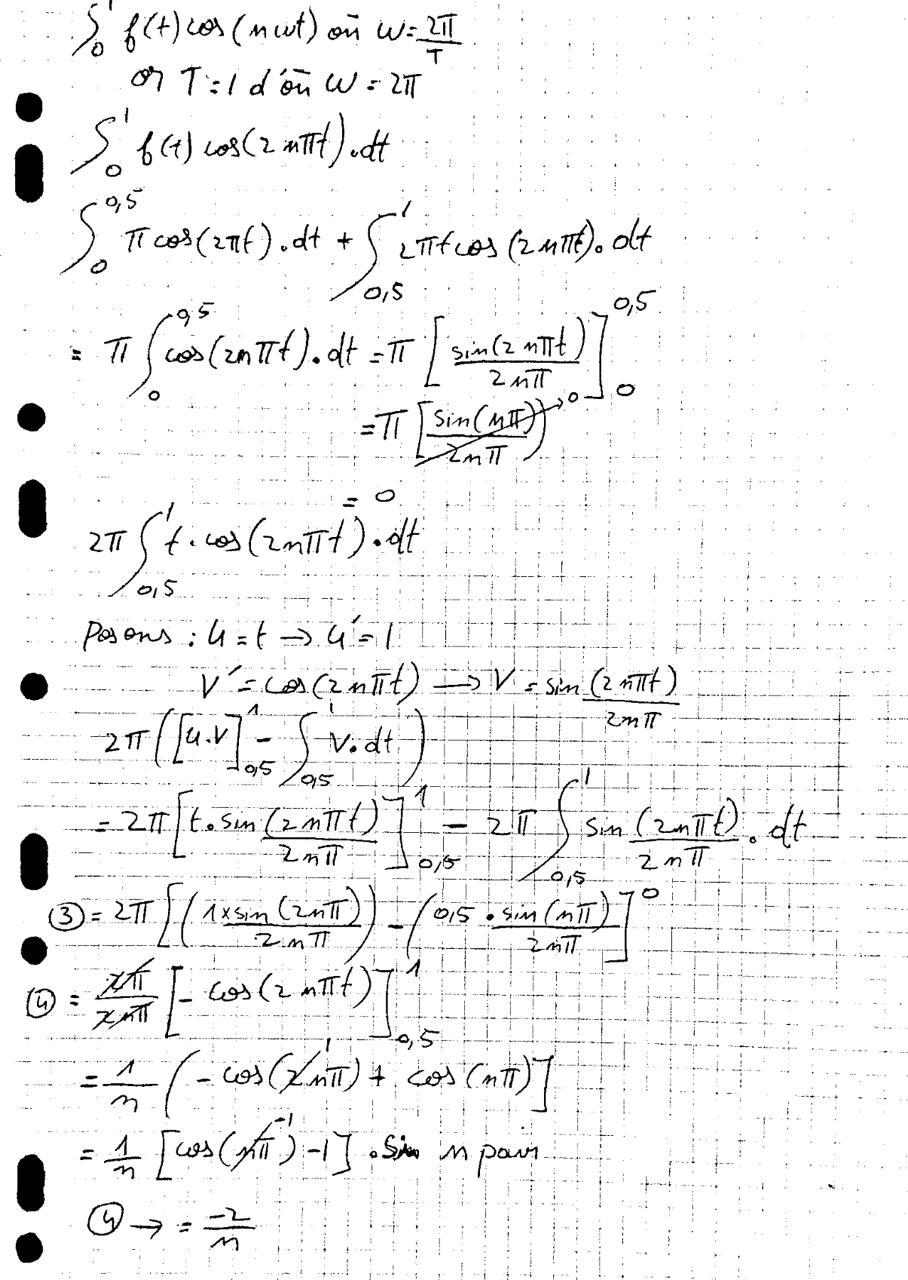 ∫₀¹ f(t) cos(nωt) où ω = 2π/T
or T = 1 d'où ω = 2π
∫₀¹ f(t) cos(2nπt).dt
∫₀^0,5 π cos(2πt).dt + ∫_0,5^1 2πt cos(2nπt).dt
= π ∫₀^0,5 cos(2nπt).dt = π [sin(2nπt)/2nπ]₀^0,5
= π [sin(nπ)/2nπ) → 0
= 0
2π ∫_0,5^1 t.cos(2nπt).dt
Posons : u = t → u' = 1
V' = cos(2nπt) → V = sin(2nπt)/2nπ
2π ([u.V]_0,5^1 - ∫_0,5^1 V.dt)
= 2π [t.sin(2nπt)/2nπ]_0,5^1 - 2π ∫_0,5^1 sin(2nπt)/2nπ . dt
③ = 2π [(1×sin(2nπ)/2nπ) - (0,5.sin(nπ)/2nπ]^0
④ = 2π/2nπ [- cos(2nπt)]_0,5^1
= 1/n (- cos(2nπ)^1 + cos(nπ)]
= 1/n [cos(nπ)^-1 - 1] . Sin n pair
④ → = -2/n